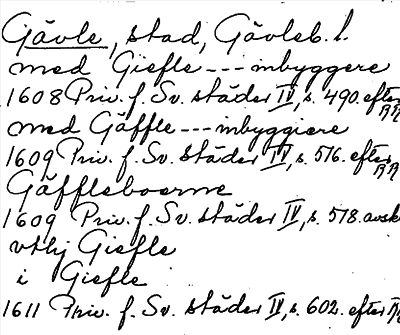 Gävle, stad, Gävleb. l.
med Giefle --- inbyggere
1608 Priv. f. Sv. städer IV, s. 490. efter RR
med Gäffle --- inbyggiere
1609 Priv. f. Sv. städer IV, s. 516. efter RR
Gäffleboerne
1609 Priv. f. Sv. städer IV, s. 518. avsk
vthj Giefle
i Giefle
1611 Priv. f. Sv. städer IV, s. 602. efter RR